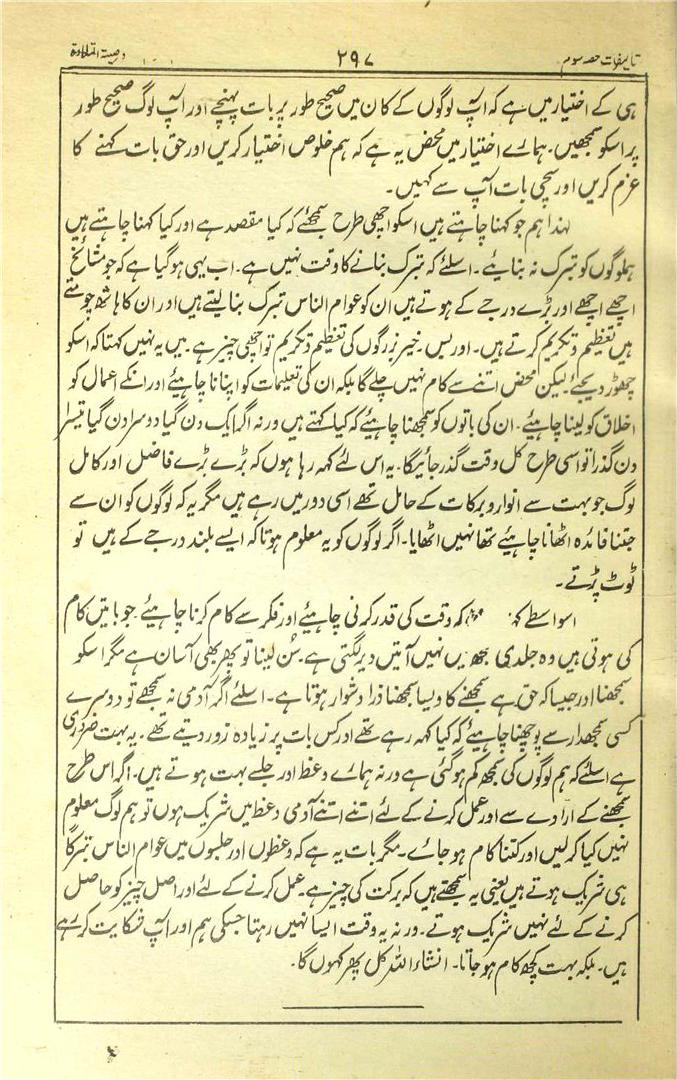 تالیفات حصہ سوم ۲۹۷ وصیۃ التلاوۃ
ہی کے اختیار میں ہے کہ آپ لوگوں کے کان میں صحیح طور پر بات پہنچے اور آپ لوگ صحیح طور
پر اسکو سمجھیں۔ ہمارے اختیار میں محض یہ ہے کہ ہم خلوص اختیار کریں اور حق بات کہنے کا
عزم کریں اور سچی بات آپ سے کہیں۔
لہذا ہم جو کہنا چاہتے ہیں اسکو اچھی طرح سمجھئے کہ کیا مقصد ہے اور کیا کہنا چاہتے ہیں
ہملوگوں کو تبرک نہ بنایئے۔ اسلئے کہ تبرک بنانے کا وقت نہیں ہے۔ اب یہی ہو گیا ہے کہ جو مشائخ
اچھے اچھے اور بڑے درجے کے ہوتے ہیں ان کو عوام الناس تبرک بنا لیتے ہیں اور ان کا ہاتھ چومتے
ہیں تعظیم و تکریم کرتے ہیں۔ اور بس۔ خیر بزرگوں کی تعظیم و تکریم تو اچھی چیز ہے۔ میں یہ نہیں کہتا کہ اسکو
چھوڑ دیجئے لیکن محض اتنے سے کام نہیں چلے گا بلکہ ان کی تعلیمات کو اپنانا چاہیئے اور انکے اعمال کو
اخلاق کو لینا چاہیئے۔ ان کی باتوں کو سمجھنا چاہیئے کہ کیا کہتے ہیں ورنہ اگر ایک دن گیا دوسرا دن گیا تیسرا
دن گذرا تو اسی طرح کل وقت گذر جائیگا۔ یہ اس لئے کہہ رہا ہوں کہ بڑے بڑے فاضل اور کامل
لوگ جو بہت سے انوار و برکات کے حامل تھے اسی دور میں رہے ہیں مگر یہ کہ لوگوں کو ان سے
جتنا فائدہ اٹھانا چاہیئے تھا نہیں اٹھایا۔ اگر لوگوں کو یہ معلوم ہوتا کہ ایسے بلند درجے کے ہیں تو
ٹوٹ پڑتے۔
اسواسطے کہ کہ وقت کی قدر کرنی چاہیئے اور فکر سے کام کرنا چاہیئے۔ جو باتیں کام
کی ہوتی ہیں وہ جلدی سمجھ میں نہیں آتیں دیر لگتی ہے۔ سُن لینا تو پھر بھی آسان ہے مگر اسکو
سمجھنا اور جیسا کہ حق ہے سمجھنے کا ویسا سمجھنا ذرا دشوار ہوتا ہے۔ اسلئے اگر آدمی نہ سمجھے تو دوسرے
کسی سمجھدار سے پوچھنا چاہیئے کہ کیا کہہ رہے تھے اور کس بات پر زیادہ زور دیتے تھے۔ یہ بہت ضروری
ہے اسلئے کہ ہم لوگوں کی سمجھ کم ہو گئی ہے ورنہ ہمارے وعظ اور جلسے بہت ہوتے ہیں۔ اگر اس طرح
سمجھنے کے ارادے سے اور عمل کرنے کے لئے اتنے اتنے آدمی وعظ میں شریک ہوں تو ہم لوگ معلوم
نہیں کیا کرلیں اور کتنا کام ہو جائے۔ مگر بات یہ ہے کہ وعظوں اور جلسوں میں عوام الناس تبرکاً
ہی شریک ہوتے ہیں یعنی یہ سمجھتے ہیں کہ برکت کی چیز ہے۔ عمل کرنے کے لئے اور اصل چیز کو حاصل
کرنے کے لئے نہیں شریک ہوتے۔ ورنہ یہ وقت ایسا نہیں رہتا جسکی ہم اور آپ شکایت کر رہے
ہیں۔ بلکہ بہت کچھ کام ہو جاتا۔ انشاء اللہ کل پھر کہوں گا۔